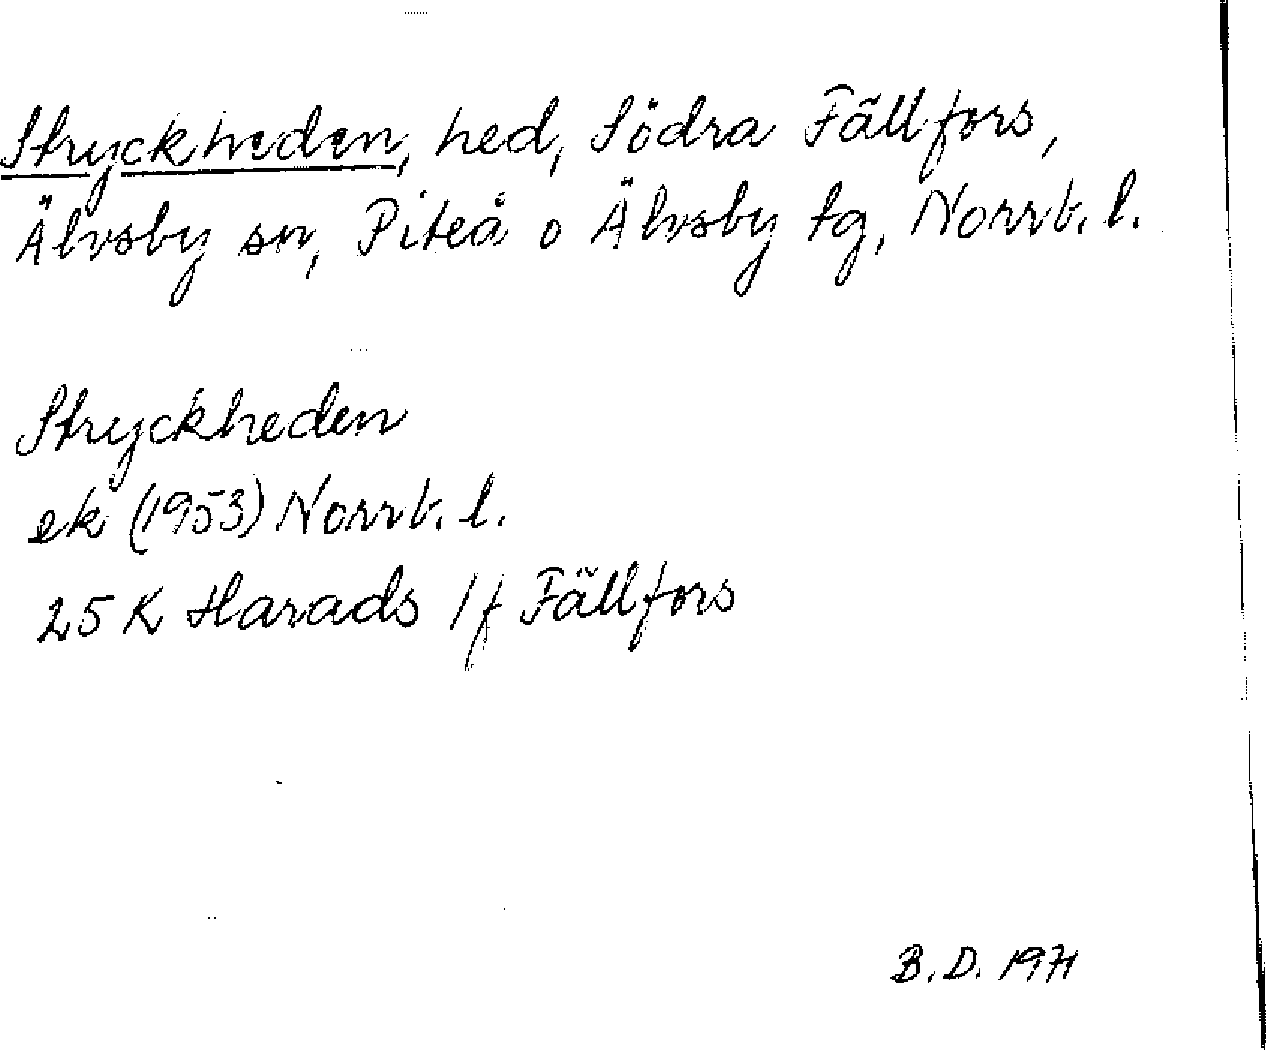 Stryckheden, hed, Södra Fällfors,
Älvsby sn, Piteå o Älvsby tg, Norrb. l.
Stryckheden
ek (1953) Norrb. l.
25 K Harads 1f Fällfors
B.D. 1971